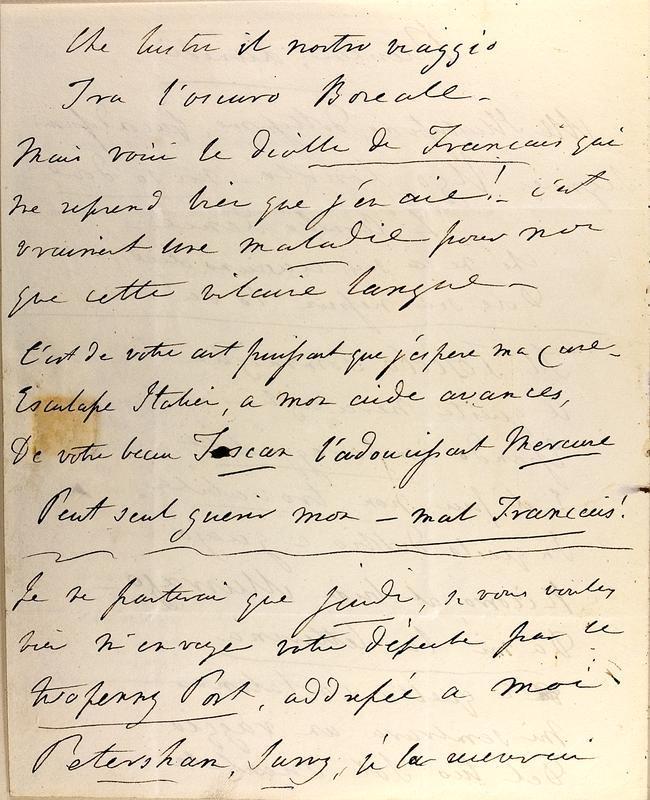 Che lustri il nostro viaggio
Tra l'oscuro Boreale –
Mais voici le diable de Francais qui
me reprend bien que j'en aie! – c'est
vraiment une maladie pour moi
que cette vilaine langue –
C'est de votre art puissant que j'espere ma cure –
Esculape Italien, a mon aide avances,
De votre beau Toscan l'adoucissant Mercure
Peut seul guerir mon – mal Francais!
Je ne partirai que jeudi, si vous voulez
bien m'envoye votre dépeche par le
twopenny Post, addressée a moi
Petersham, Surry, je la recevrai